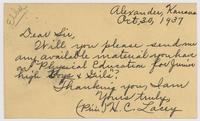 Alexander, Kansas
Oct. 30, 1937
Dear Sir,
Will you please send me
any available material you have
on "Physical Education for Junior
high Boys & Girls?
Thanking you, I am
Yours truly,
(Prin.) H. C. Lacey